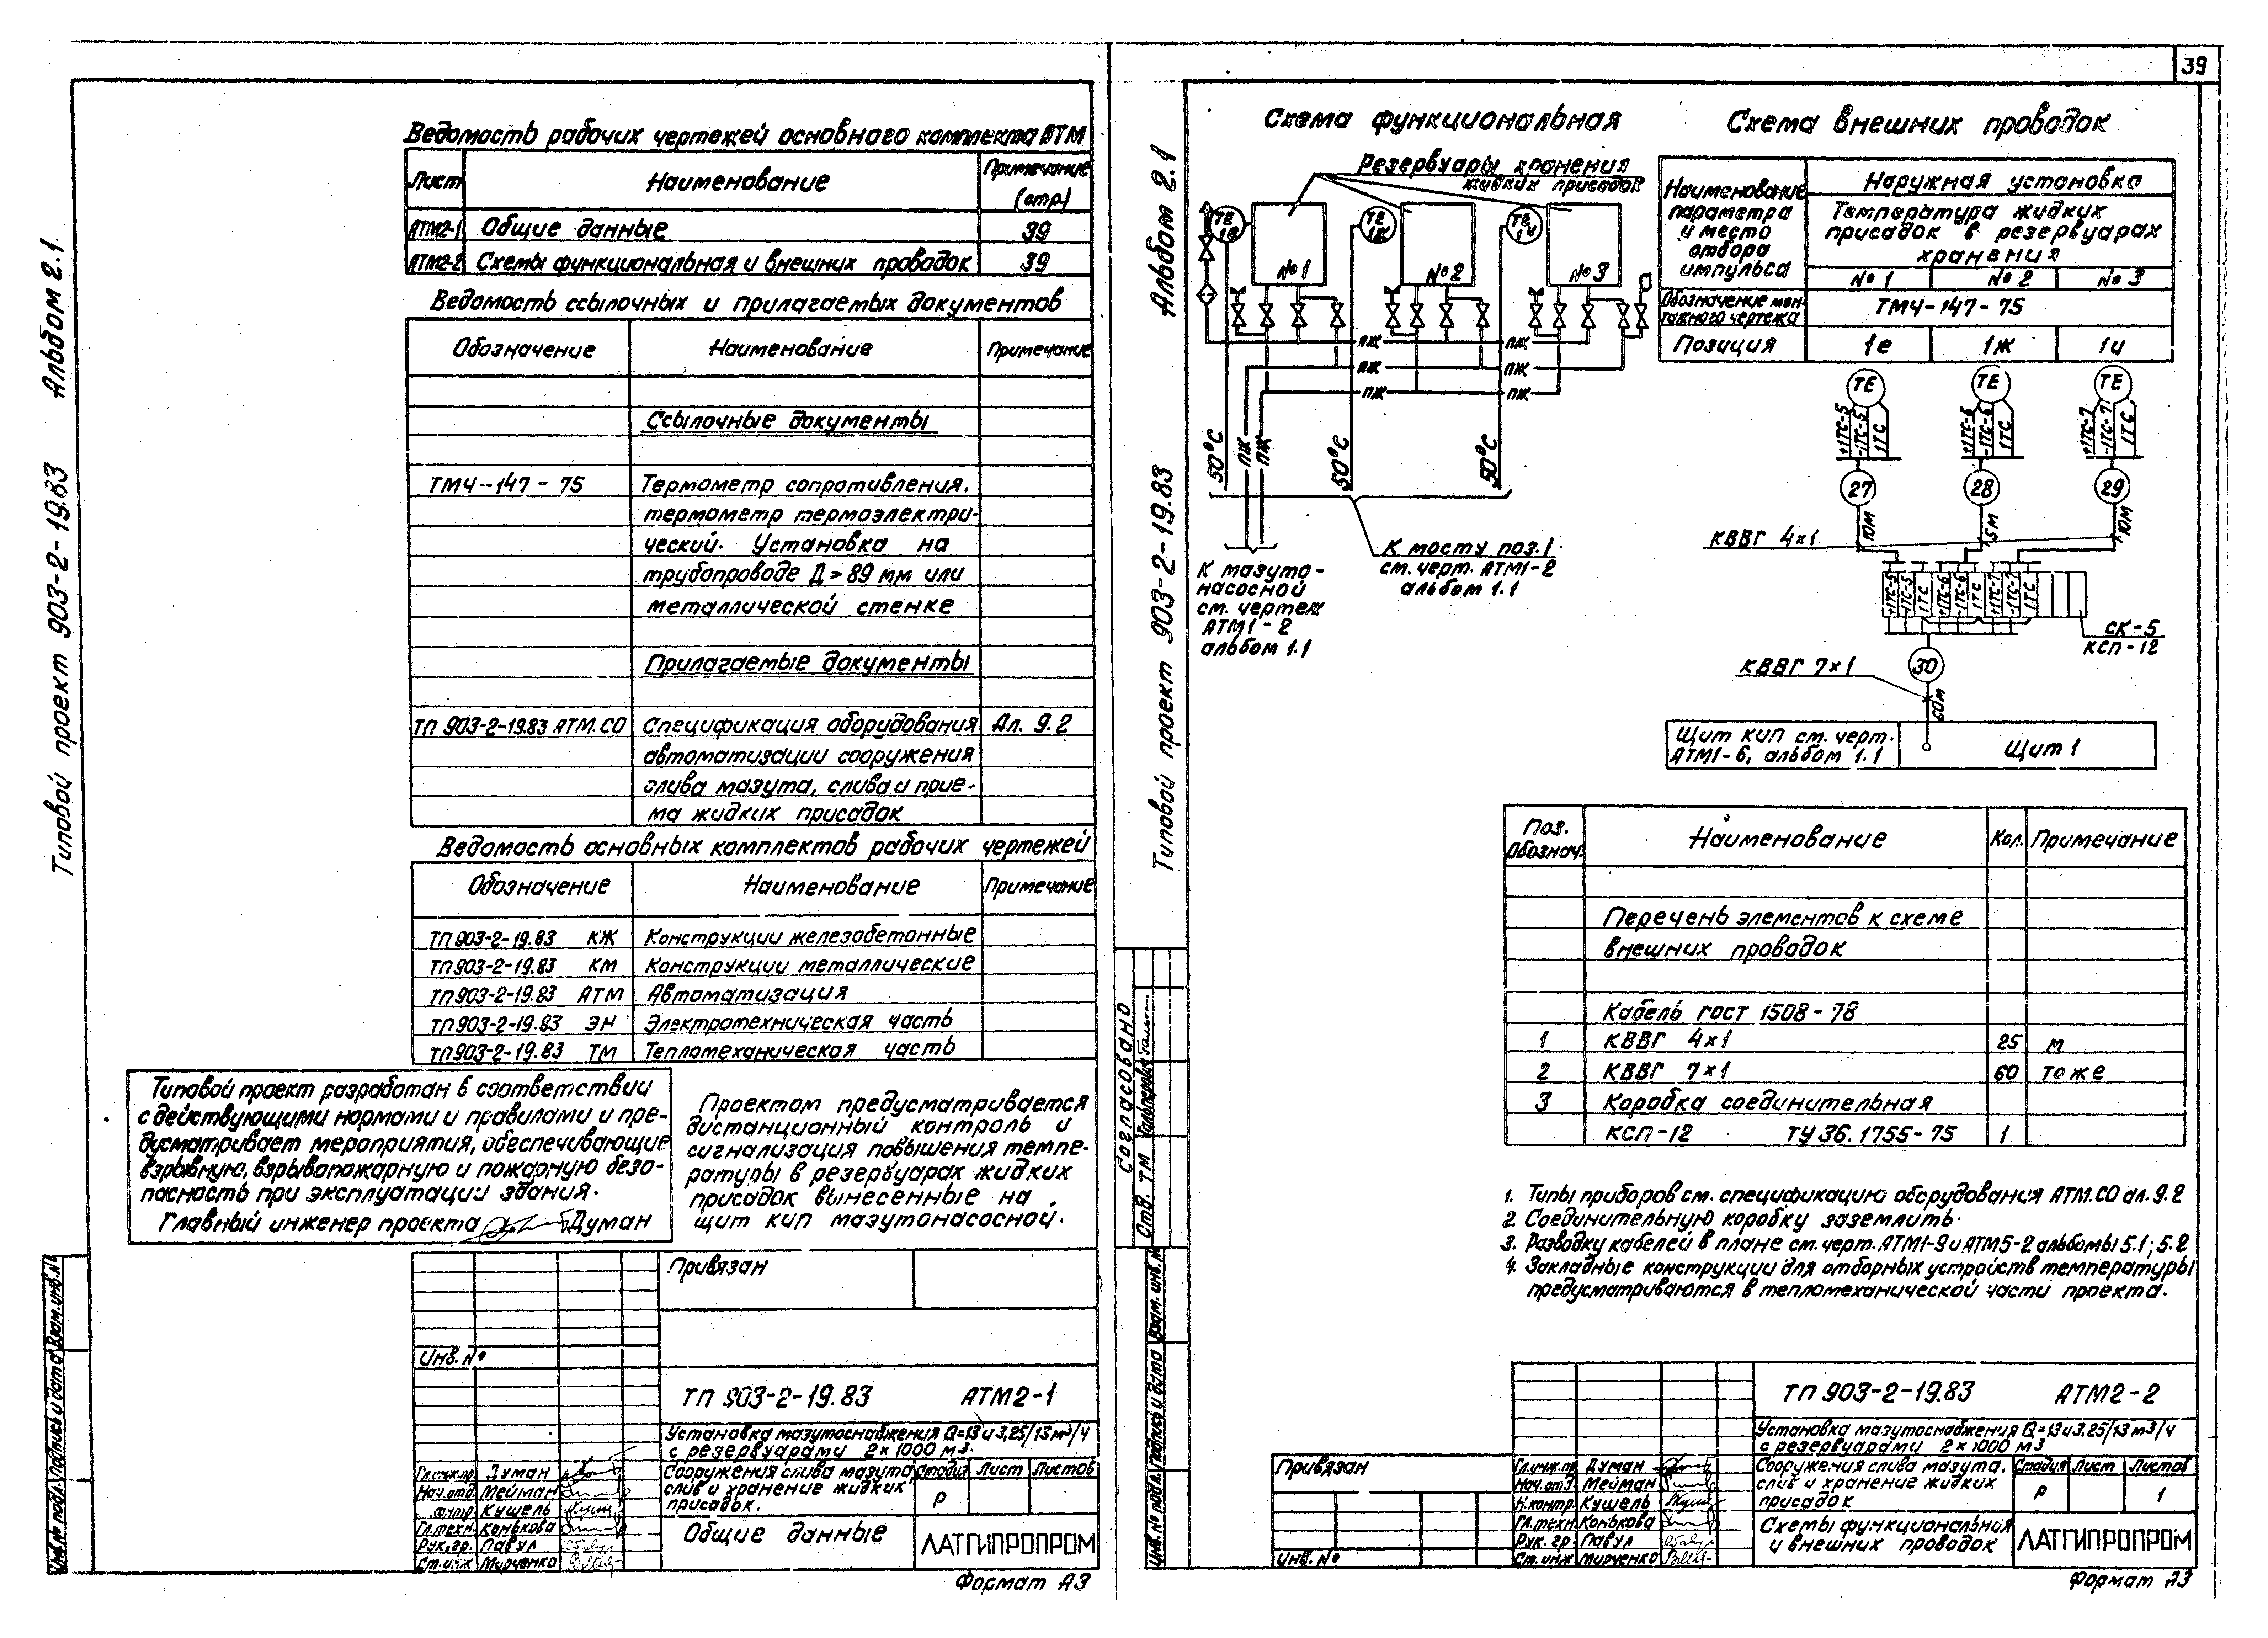 39
Типовой проект 903-2-19.83 Альбом 2.1
Ведомость рабочих чертежей основного комплекта АТМ
Лист Наименование Примечание (стр.)
АТМ2-1 Общие данные 39
АТМ2-2 Схемы функциональная и внешних проводок 39
Ведомость ссылочных и прилагаемых документов
Обозначение Наименование Примечание
Ссылочные документы
ТМ4-147-75 Термометр сопротивления.
термометр термоэлектри-
ческий. Установка на
трубопроводе Д>89 мм или
металлической стенке
Прилагаемые документы
ТП 903-2-19.83 АТМ.СО Спецификация оборудования Ал. 9.2
автоматизации сооружения
слива мазута, слива и прие-
ма жидких присадок
Ведомость основных комплектов рабочих чертежей
Обозначение Наименование Примечание
ТП 903-2-19.83 КЖ Конструкции железобетонные
ТП 903-2-19.83 КМ Конструкции металлические
ТП 903-2-19.83 АТМ Автоматизация
ТП 903-2-19.83 ЭН Электротехническая часть
ТП 903-2-19.83 ТМ Тепломеханическая часть
Типовой проект разработан в соответствии
с действующими нормами и правилами и пре-
дусматривает мероприятия, обеспечивающие
взрывную, взрывопожарную и пожарную безо-
пасность при эксплуатации здания.
Главный инженер проекта Думан
Проектом предусматривается
дистанционный контроль и
сигнализация повышения темпе-
ратуры в резервуарах жидких
присадок вынесенные на
щит КИП мазутонасосной.
Привязан
Инв. №
ТП 903-2-19.83 АТМ2-1
Установка мазутоснабжения Q=13 и 3,25/13 м³/ч
с резервуарами 2×1000 м3.
Гл.инж.пр. Думан
Нач.отд. Мейман
контр Кушель
Гл.техн. Конькова
Рук.гр. Павул
Ст.инж Мирченко
Сооружения слива мазута,
слив и хранение жидких
присадок.
Стадия Лист Листов
Р
Общие данные
ЛАТГИПРОПРОМ
Формат А3
Инв.№ подл. Подпись и дата Взам.инв.№
Типовой проект 903-2-19.83 Альбом 2.1
Схема функциональная
Резервуары хранения
жидких присадок
ТЕ 1е ТЕ 1ж ТЕ 1и
№1 №2 №3
ПЖ ПЖ
ПЖ ПЖ
ПЖ ПЖ
50°С ПЖ ПЖ 50°С 50°С
К мазуто-
насосной
см. чертеж
АТМ1-2
альбом 1.1
К мосту поз.1
см. черт. АТМ1-2
альбом 1.1
Схема внешних проводок
Наименование
параметра
и место
отбора
импульса
Наружная установка
Температура жидких
присадок в резервуарах
хранения
№1 №2 №3
Обозначение мон-
тажного чертежа
ТМ4-147-75
Позиция 1е 1ж 1и
ТЕ ТЕ ТЕ
+1ТС-5 -1ТС-5 1ТС +1ТС-6 -1ТС-6 1ТС +1ТС-7 -1ТС-7 1ТС
27 28 29
КВВГ 4×1 10м 5м 10м
+1ТС-5 -1ТС-5 1ТС +1ТС-6 -1ТС-6 1ТС +1ТС-7 -1ТС-7 1ТС
СК-5
КСП-12
30
КВВГ 7×1
60м
Щит КИП см. черт.
АТМ1-6, альбом 1.1
Щит 1
Поз. Обознач. Наименование Кол. Примечание
Перечень элементов к схеме
внешних проводок
Кабель ГОСТ 1508-78
1 КВВГ 4×1 25 м
2 КВВГ 7×1 60 то же
3 Коробка соединительная
КСП-12 ТУ 36.1755-75 1
1. Типы приборов см. спецификацию оборудования АТМ.СО ал. 9.2
2. Соединительную коробку заземлить.
3. Разводку кабелей в плане см. черт. АТМ1-9 и АТМ5-2 альбомы 5.1; 5.2
4. Закладные конструкции для отборных устройств температуры
предусматриваются в тепломеханической части проекта.
Согласовано
Отв. ТМ
Инв.№ подл. Подпись и дата Взам. инв.№
Привязан
Инв. №
ТП 903-2-19.83 АТМ2-2
Установка мазутоснабжения Q=13 и 3.25/13 м³/ч
с резервуарами 2×1000 м3
Гл.инж.пр. Думан
Нач.отд. Мейман
Н.контр. Кушель
Гл.техн Конькова
Рук. гр. Павул
Ст.инж Мирченко
Сооружения слива мазута,
слив и хранение жидких
присадок
Стадия Лист Листов
Р 1
Схемы функциональная
и внешних проводок
ЛАТГИПРОПРОМ
Формат А3